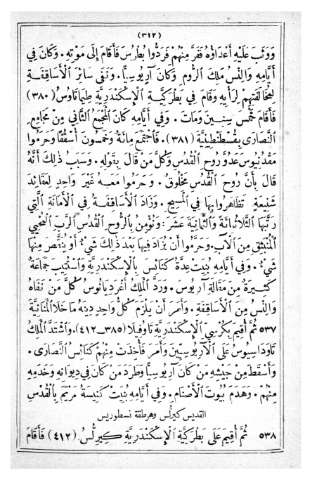 (٣١٢)
ووثب عليه أعداؤه ففر منهم فردوا بطرس فأقام إلى موته. وكان في
أيامه والنس ملك الروم وكان آريوسيا. ونفى سائر الأساقفة
لمخالفتهم لرأيه وقام في بطركية الإسكندرية طيماتاوس (٣٨٠)
فأقام خمس سنين ومات. وفي أيامه كان المجمع الثاني من مجامع
النصارى بقسطنطينية (٣٨١). فاجتمع مائة وخمسون أسقفا وحرموا
مقدنيوس عدو روح القدس وكل من قال بقوله. وسبب ذلك أنه
قال بأن روح القدس مخلوق. وحرموا معه غير واحد لعقائد
شنيعة تظاهروا بها في المسيح. وزاد الأساقفة في الأمانة التي
رتبها الثلاثمائة والثمانية عشر: ونؤمن بالروح القدس الرب المحيي
المنبثق من الآب. وحرموا أن يزاد فيها بعد ذلك شيء أو ينقص منها
شيء. وفي أيامه بنيت عدة كنائس بالإسكندرية واستتيب جماعة
كثيرة من مقالة آريوس. ورد الملك أغرديانوس كل من نفاه
والنس من الأساقفة. وأمر أن يلزم كل واحد دينه ما خلا المنانية
٥٣٧ ثم أقيم بكرسي الإسكندرية تاوفيلا (٣٨٥-٤١٢). واشتد الملك
تاوداسيوس على الآريوسيين وأمر فأخذت منهم كنائس النصارى.
وأسقط من جيشه من كان آريوسيا وطرد من كان في ديوانه وخدمه
منهم. وهدم بيوت الأصنام. وفي أيامه بنيت كنيسة مريم بالقدس
القديس كيرلس وهرطقة نسطوريس
٥٣٨ ثم أقيم على بطركية الإسكندرية كيرلس (٤١٢) فأقام